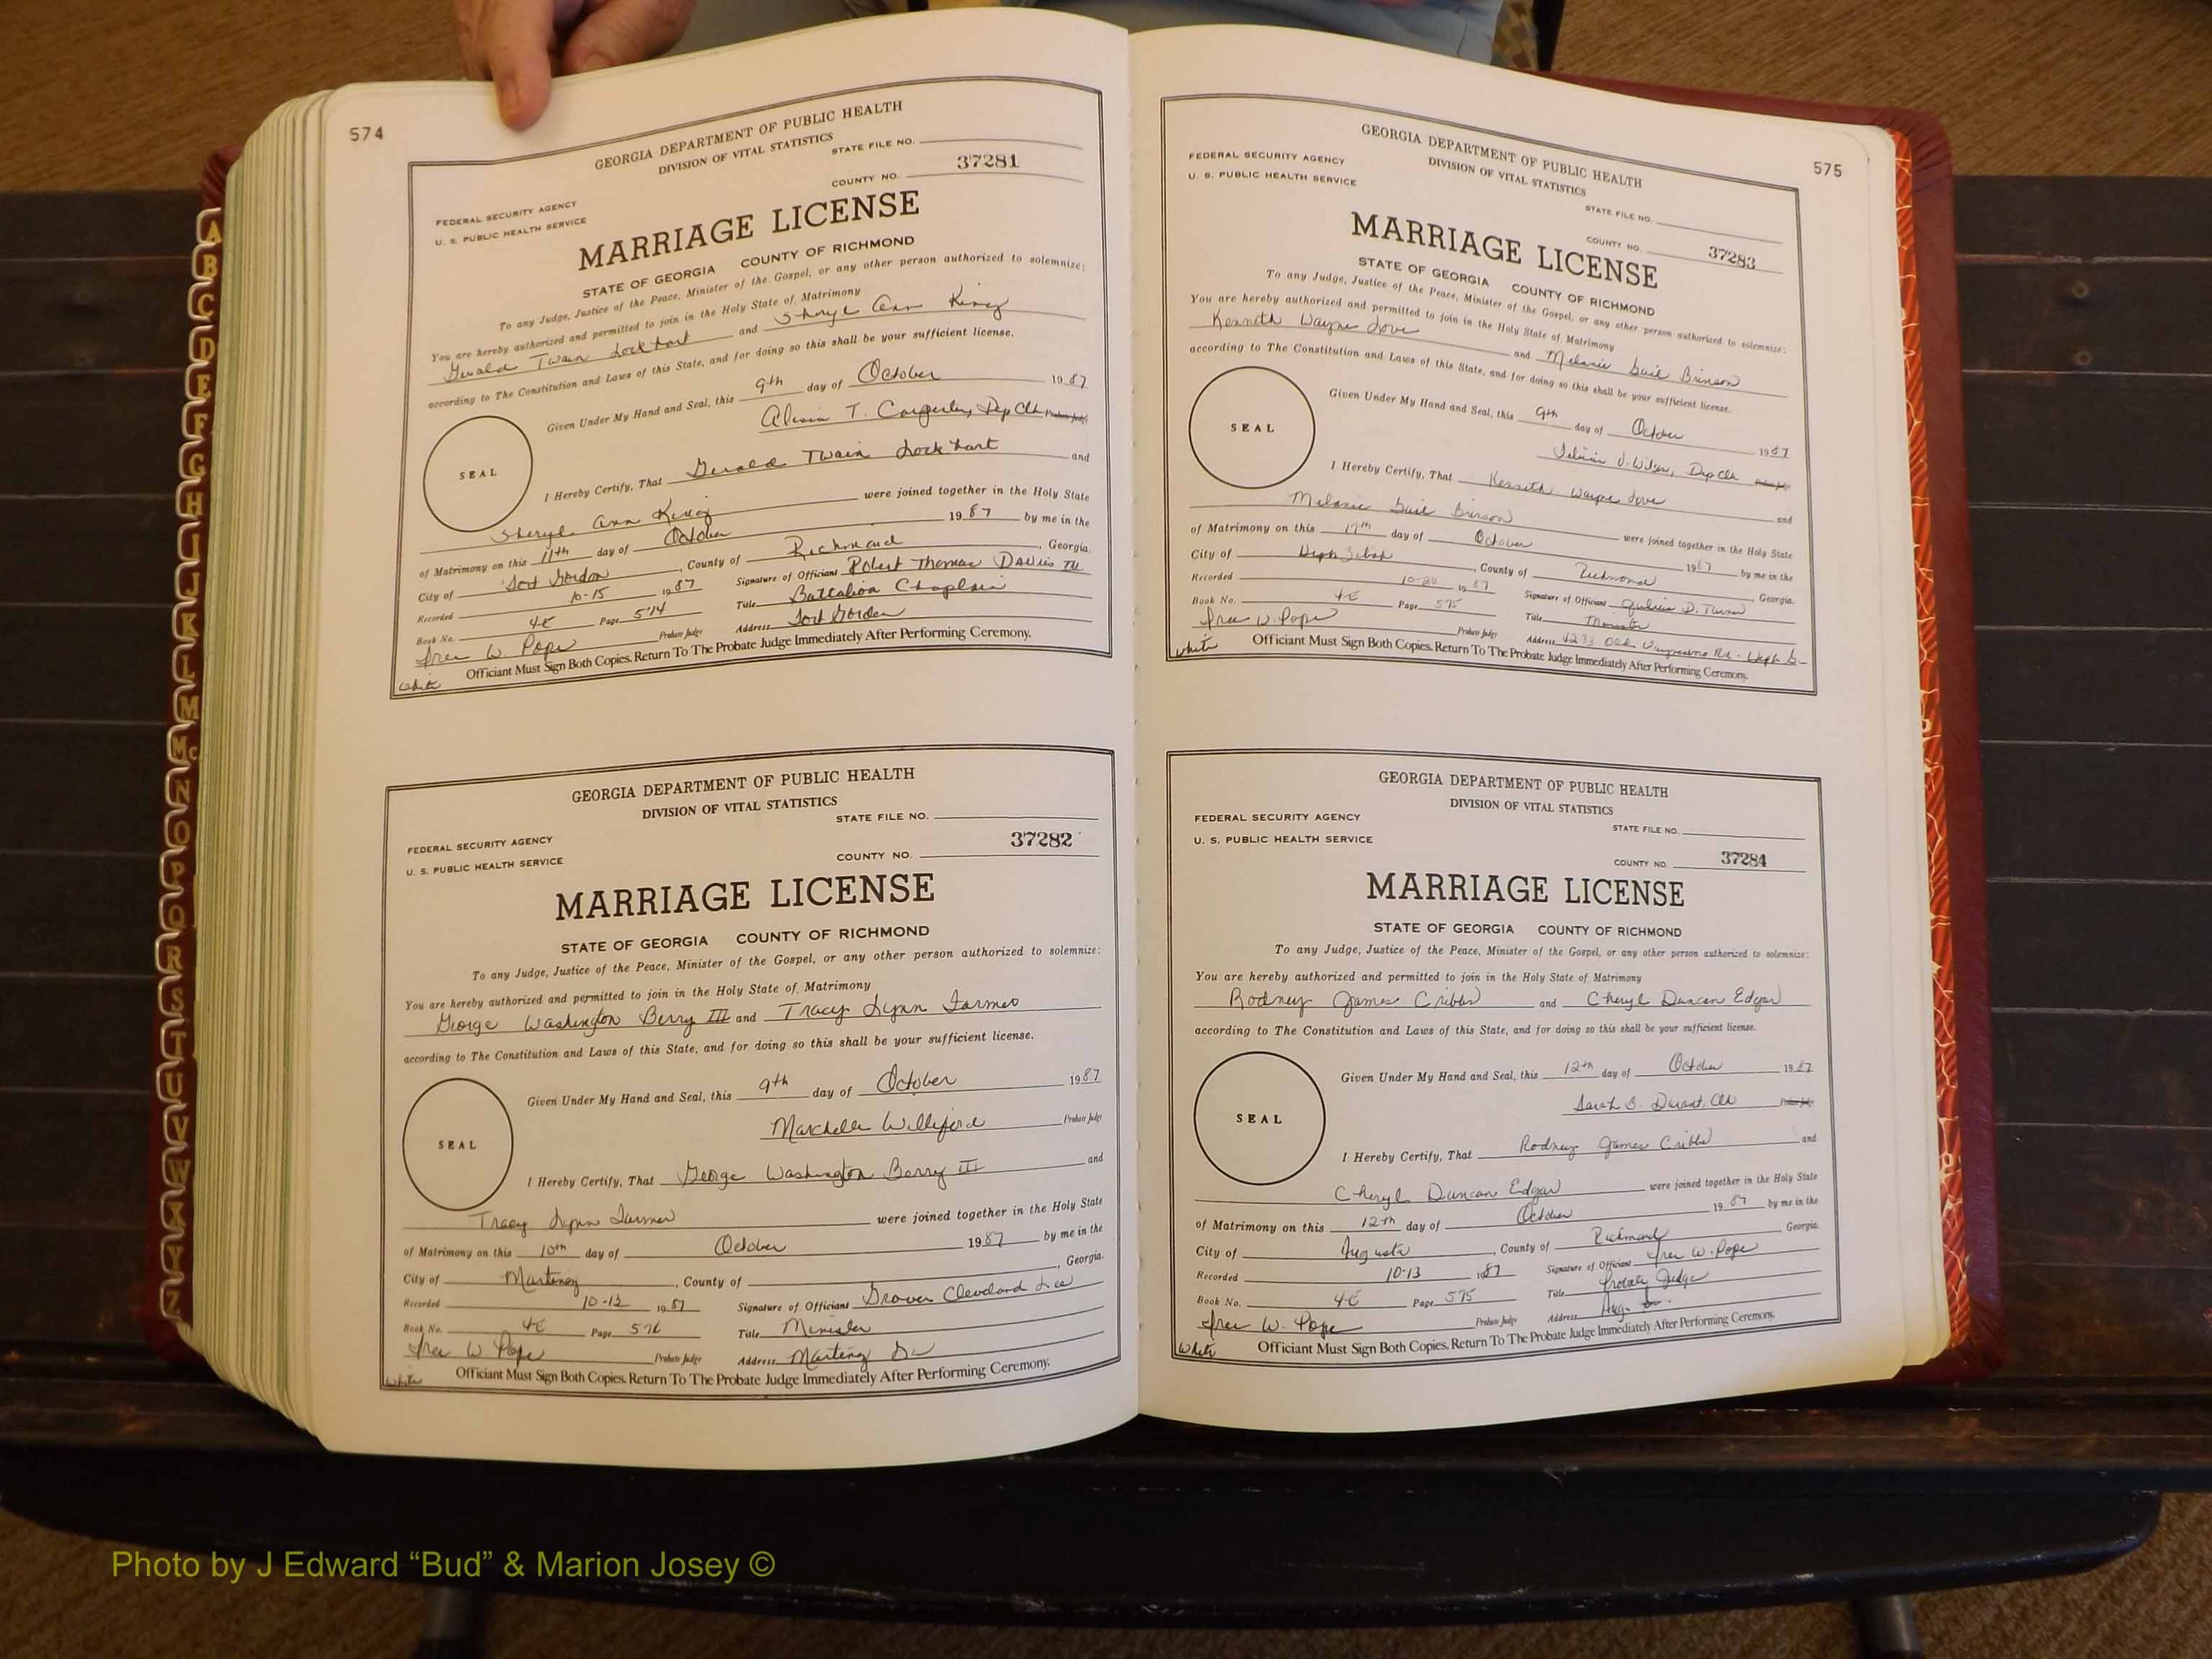 574
GEORGIA DEPARTMENT OF PUBLIC HEALTH
DIVISION OF VITAL STATISTICS
STATE FILE NO.
COUNTY NO. 37281
FEDERAL SECURITY AGENCY
U. S. PUBLIC HEALTH SERVICE
MARRIAGE LICENSE
STATE OF GEORGIA COUNTY OF RICHMOND
To any Judge, Justice of the Peace, Minister of the Gospel, or any other person authorized to solemnize:
You are hereby authorized and permitted to join in the Holy State of Matrimony
Gerald Twain Lockhart and Sheryl Ann King
according to The Constitution and Laws of this State, and for doing so this shall be your sufficient license.
Given Under My Hand and Seal, this 9th day of October 1987
Alisia T. Carpenter, Dep Clk Probate Judge
SEAL
I Hereby Certify, That Gerald Twain Lockhart and
Sheryl Ann King were joined together in the Holy State
of Matrimony on this 11th day of October 1987 by me in the
City of Fort Gordon, County of Richmond, Georgia.
Recorded 10-15 1987 Signature of Officiant Robert Thomas Davis III
Book No. 4E Page 574 Title Battalion Chaplain
Free W. Pope Probate Judge Address Fort Gordon
White Officiant Must Sign Both Copies. Return To The Probate Judge Immediately After Performing Ceremony.
GEORGIA DEPARTMENT OF PUBLIC HEALTH
DIVISION OF VITAL STATISTICS
STATE FILE NO.
FEDERAL SECURITY AGENCY
U. S. PUBLIC HEALTH SERVICE
COUNTY NO. 37282
MARRIAGE LICENSE
STATE OF GEORGIA COUNTY OF RICHMOND
To any Judge, Justice of the Peace, Minister of the Gospel, or any other person authorized to solemnize:
You are hereby authorized and permitted to join in the Holy State of Matrimony
George Washington Berry III and Tracy Lynn Farmer
according to The Constitution and Laws of this State, and for doing so this shall be your sufficient license.
Given Under My Hand and Seal, this 9th day of October 1987
Marchelle Williford Probate Judge
SEAL
I Hereby Certify, That George Washington Berry III and
Tracy Lynn Farmer were joined together in the Holy State
of Matrimony on this 10th day of October 1987 by me in the
City of Martinez, County of Georgia.
Recorded 10-13 1987 Signature of Officiant Grover Cleveland Lee
Book No. 4E Page 574 Title Minister
Free W. Pope Probate Judge Address Martinez Ga
White Officiant Must Sign Both Copies. Return To The Probate Judge Immediately After Performing Ceremony.
575
GEORGIA DEPARTMENT OF PUBLIC HEALTH
DIVISION OF VITAL STATISTICS
FEDERAL SECURITY AGENCY
U. S. PUBLIC HEALTH SERVICE
STATE FILE NO.
COUNTY NO. 37283
MARRIAGE LICENSE
STATE OF GEORGIA COUNTY OF RICHMOND
To any Judge, Justice of the Peace, Minister of the Gospel, or any other person authorized to solemnize:
You are hereby authorized and permitted to join in the Holy State of Matrimony
Kenneth Wayne Love and Melanie Gail Brinson
according to The Constitution and Laws of this State, and for doing so this shall be your sufficient license.
Given Under My Hand and Seal, this 9th day of October 1987
Wilson, Dep Clk Probate Judge
SEAL
I Hereby Certify, That Kenneth Wayne Love and
Melanie Gail Brinson were joined together in the Holy State
of Matrimony on this 17th day of October 1987 by me in the
City of Heph Zebah, County of Richmond Georgia.
Recorded 10-20 1987 Signature of Officiant D. Turner
Book No. 4E Page 575 Title Minister
Free W. Pope Probate Judge Address 4233 Old Waynesboro Rd.
White Officiant Must Sign Both Copies. Return To The Probate Judge Immediately After Performing Ceremony.
GEORGIA DEPARTMENT OF PUBLIC HEALTH
DIVISION OF VITAL STATISTICS
FEDERAL SECURITY AGENCY
U. S. PUBLIC HEALTH SERVICE
STATE FILE NO.
COUNTY NO. 37284
MARRIAGE LICENSE
STATE OF GEORGIA COUNTY OF RICHMOND
To any Judge, Justice of the Peace, Minister of the Gospel, or any other person authorized to solemnize:
You are hereby authorized and permitted to join in the Holy State of Matrimony
Rodney James Cribbs and Cheryl Duncan Edgar
according to The Constitution and Laws of this State, and for doing so this shall be your sufficient license.
Given Under My Hand and Seal, this 12th day of October 1987
Sarah B. Durant, Clk Probate Judge
SEAL
I Hereby Certify, That Rodney James Cribbs and
Cheryl Duncan Edgar were joined together in the Holy State
of Matrimony on this 12th day of October 1987 by me in the
City of Augusta, County of Richmond Georgia.
Recorded 10-13 1987 Signature of Officiant Free W. Pope
Book No. 4E Page 575 Title Probate Judge
Free W. Pope Probate Judge Address Aug. Ga.
White Officiant Must Sign Both Copies. Return To The Probate Judge Immediately After Performing Ceremony.
A
B
C
D
E
F
G
H
I
J
K
L
M
Mc
N
O
P
Q
R
S
T
U
V
W
X
Y
Z
Photo by J Edward “Bud” & Marion Josey ©